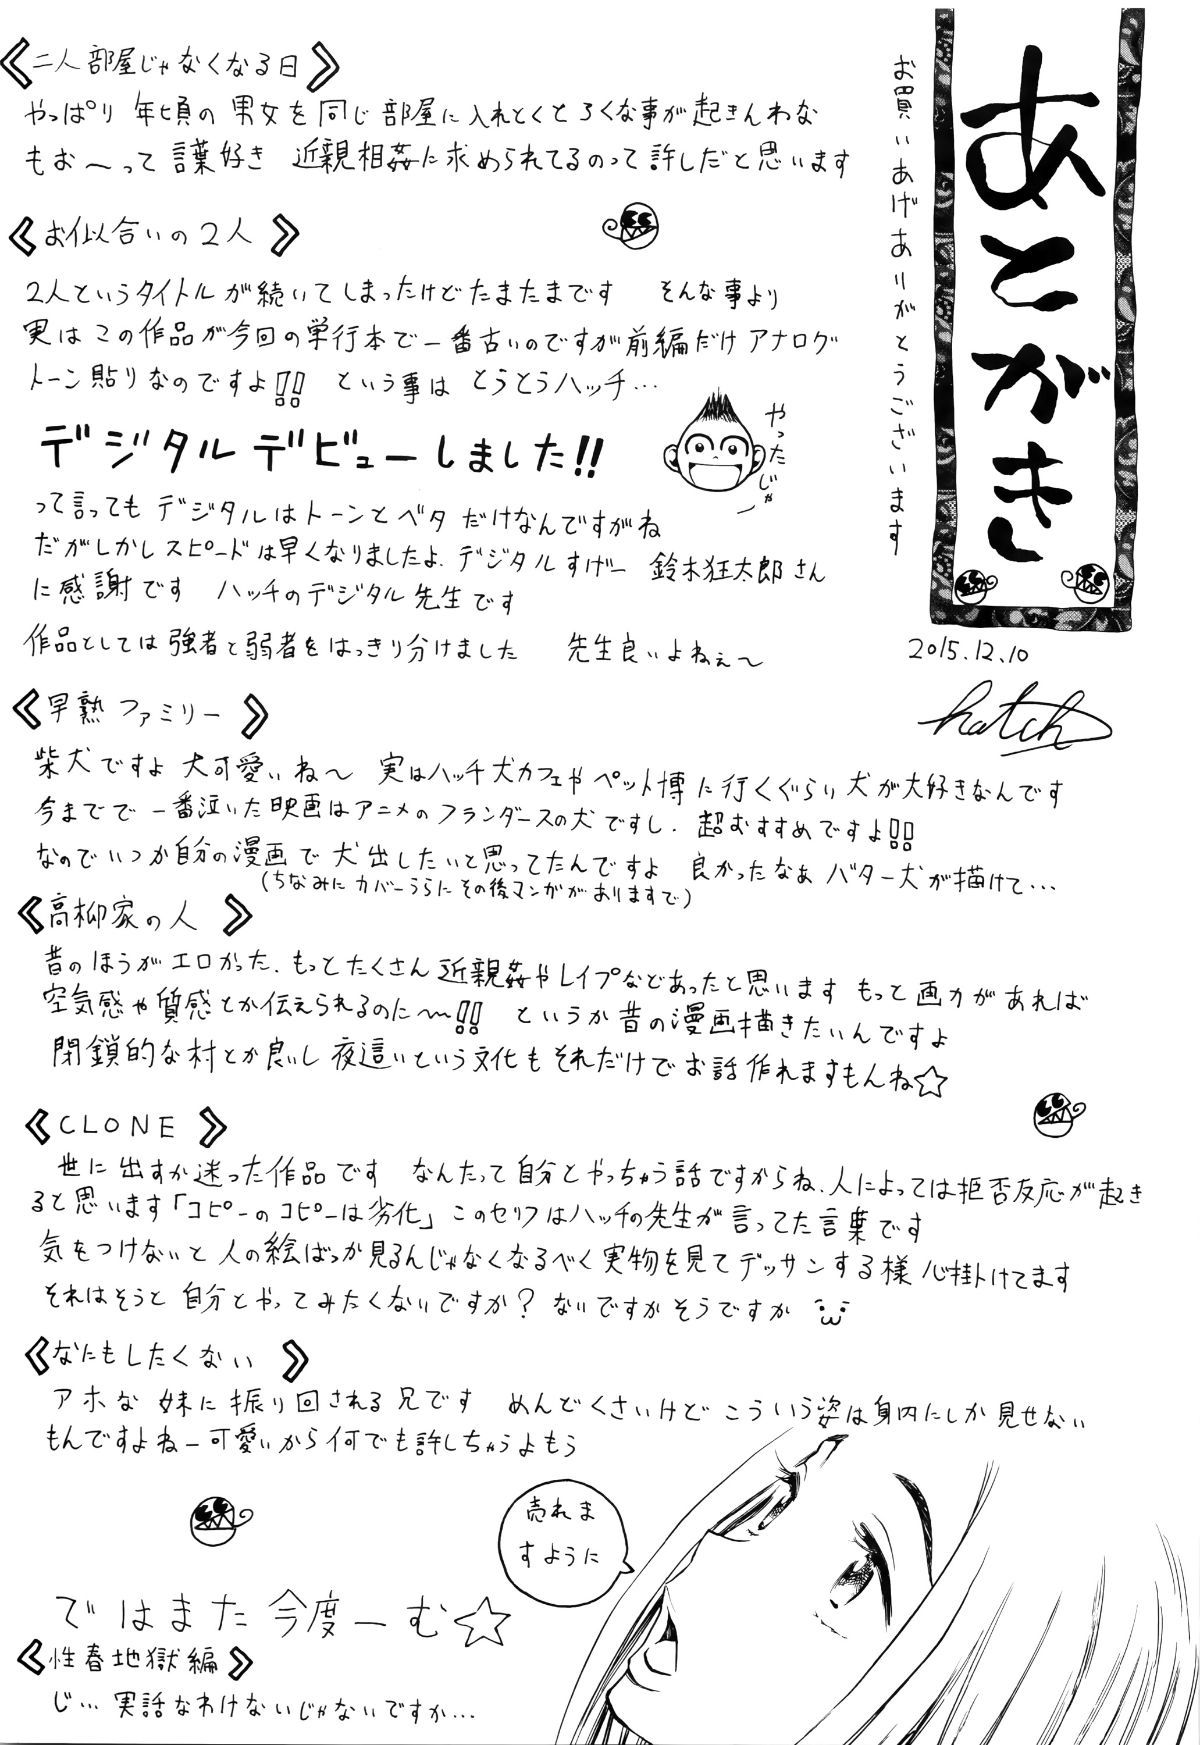 あとがき
お買いあげありがとうございます
2015.12.10
hatch
《二人部屋じゃなくなる日》
やっぱり年頃の男女を同じ部屋に入れとくとろくな事が起きんわな
もお〜って言葉好き 近親相姦に求められてるのって許しだと思います
《お似合いの2人》
2人というタイトルが続いてしまったけどたまたまです そんな事より
実はこの作品が今回の単行本で一番古いのですが前編だけアナログ
トーン貼りなのですよ!! という事は とうとうハッチ…
デジタルデビューしました!!
やったじゃー
って言っても デジタルはトーンとベタ だけなんですがね
だがしかしスピードは早くなりましたよ.デジタルすげー 鈴木狂太郎さん
に感謝です ハッチのデジタル先生です
作品としては強者と弱者をはっきり分けました 先生良いよねぇ〜
《早熟ファミリー》
柴犬ですよ 犬可愛いね〜 実はハッチ犬カフェやペット博に行くぐらい犬が大好きなんです
今までで一番泣いた映画はアニメのフランダースの犬ですし.超おすすめですよ!!
なのでいつか自分の漫画で犬出したいと思ってたんですよ 良かったなぁ バター犬が描けて…
(ちなみにカバーうらにその後マンガがありますで)
《高柳家の人》
昔のほうがエロかった.もっとたくさん近親姦やレイプなどあったと思います もっと画力があれば
空気感や質感とか伝えられるのに〜!! というか昔の漫画描きたいんですよ
閉鎖的な村とか良いし夜這いという文化もそれだけでお話作れますもんね☆
《CLONE》
世に出すか迷った作品です なんたって自分とやっちゃう話ですからね.人によっては拒否反応が起き
ると思います「コピーのコピーは劣化」このセリフはハッチの先生が言ってた言葉です
気をつけないと人の絵ばっか見るんじゃなくなるべく実物を見てデッサンする様心掛けてます
それはそうと自分とやってみたくないですか?ないですかそうですか
《なにもしたくない》
アホな妹に振り回される兄です めんどくさいけどこういう姿は身内にしか見せない
もんですよねー可愛いから何でも許しちゃうよもう
売れま
すように
ではまた今度ーむ☆
《性春地獄編》
じ…実話なわけないじゃないですか…